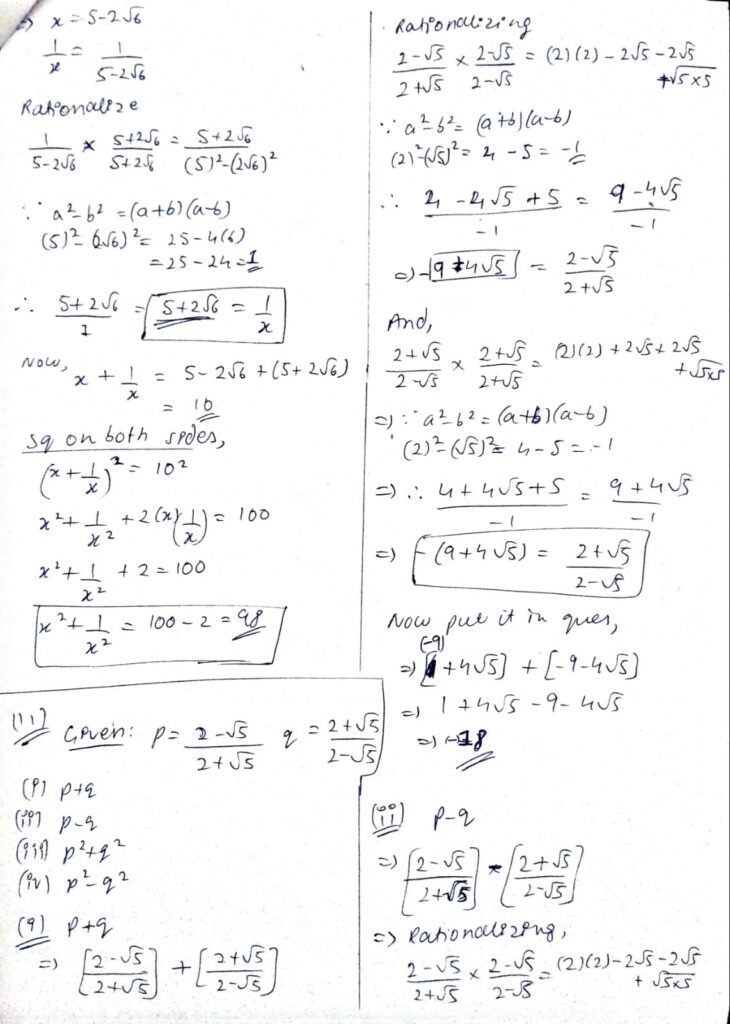 => x = 5-2√6
1/x = 1/(5-2√6)
Rationalize
1/(5-2√6) × (5+2√6)/(5+2√6) = (5+2√6)/((5)²-(2√6)²)
∵ a²-b² = (a+b)(a-b)
(5)²-(2√6)² = 25-4(6)
= 25-24 = 1
∴ (5+2√6)/1 = 5+2√6 = 1/x
Now, x + 1/x = 5-2√6+(5+2√6)
= 10
sq on both sides,
(x + 1/x)² = 10²
x² + 1/x² + 2(x)(1/x) = 100
x² + 1/x² + 2 = 100
x² + 1/x² = 100-2 = 98
(11) Given: p = (2-√5)/(2+√5) q = (2+√5)/(2-√5)
(i) p+q
(ii) p-q
(iii) p²+q²
(iv) p²-q²
(i) p+q
=> [(2-√5)/(2+√5)] + [(2+√5)/(2-√5)]
Rationalizing
(2-√5)/(2+√5) × (2-√5)/(2-√5) = (2)(2)-2√5-2√5
+√5×5
∵ a²-b² = (a+b)(a-b)
(2)²-(√5)² = 4-5 = -1
∴ (4-4√5+5)/-1 = (9-4√5)/-1
=> -9+4√5 = (2-√5)/(2+√5)
And,
(2+√5)/(2-√5) × (2+√5)/(2+√5) = (2)(2)+2√5+2√5
+√5×5
=> ∵ a²-b² = (a+b)(a-b)
(2)²-(√5)² = 4-5 = -1
=> ∴ (4+4√5+5)/-1 = (9+4√5)/-1
=> -(9+4√5) = (2+√5)/(2-√5)
Now put it in ques,
=> [(-9)+4√5] + [-9-4√5]
=> 1+4√5-9-4√5
=> -18
(ii) p-q
=> [(2-√5)/(2+√5)] - [(2+√5)/(2-√5)]
=> Rationalizing,
(2-√5)/(2+√5) × (2-√5)/(2-√5) = (2)(2)-2√5-2√5
+√5×5